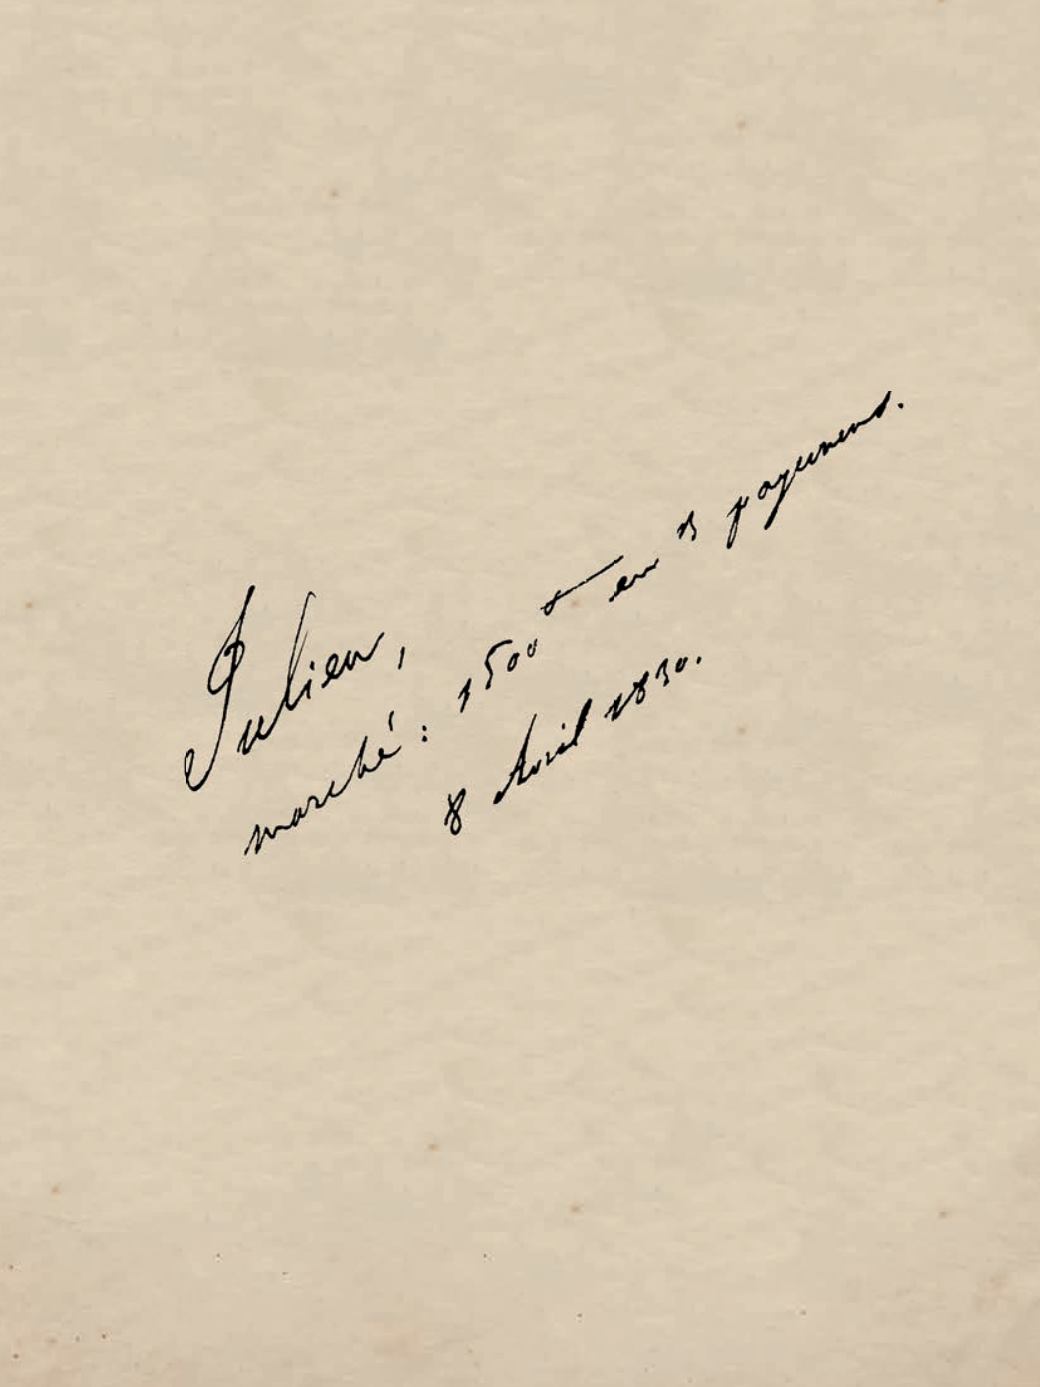 Julien,
marché : 1500 en 3 payemens.
8 Avril 1830.